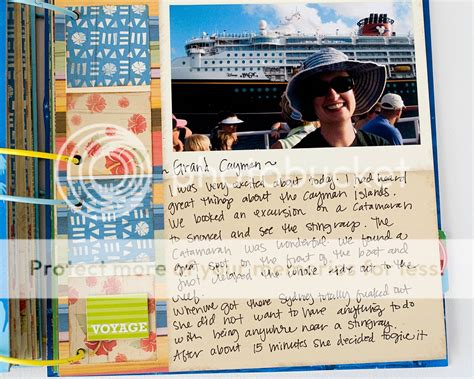 DISNEY MAGIC
~ Grand Cayman ~
I was very excited about today. I had heard
great things about the Cayman Islands.
We booked an excursion on a Catamaran
to snorkel and see the stingrays. The
Catamaran was wonderful. We found a
great spot on the front of the boat and
just relaxed the whole ride out to the
reef.
When we got there Sydney totally freaked out
she did not want to have anything to do
with being anywhere near a stingray.
After about 15 minutes she decided to give it
VOYAGE
photobucket
Protect more of your memories for less!